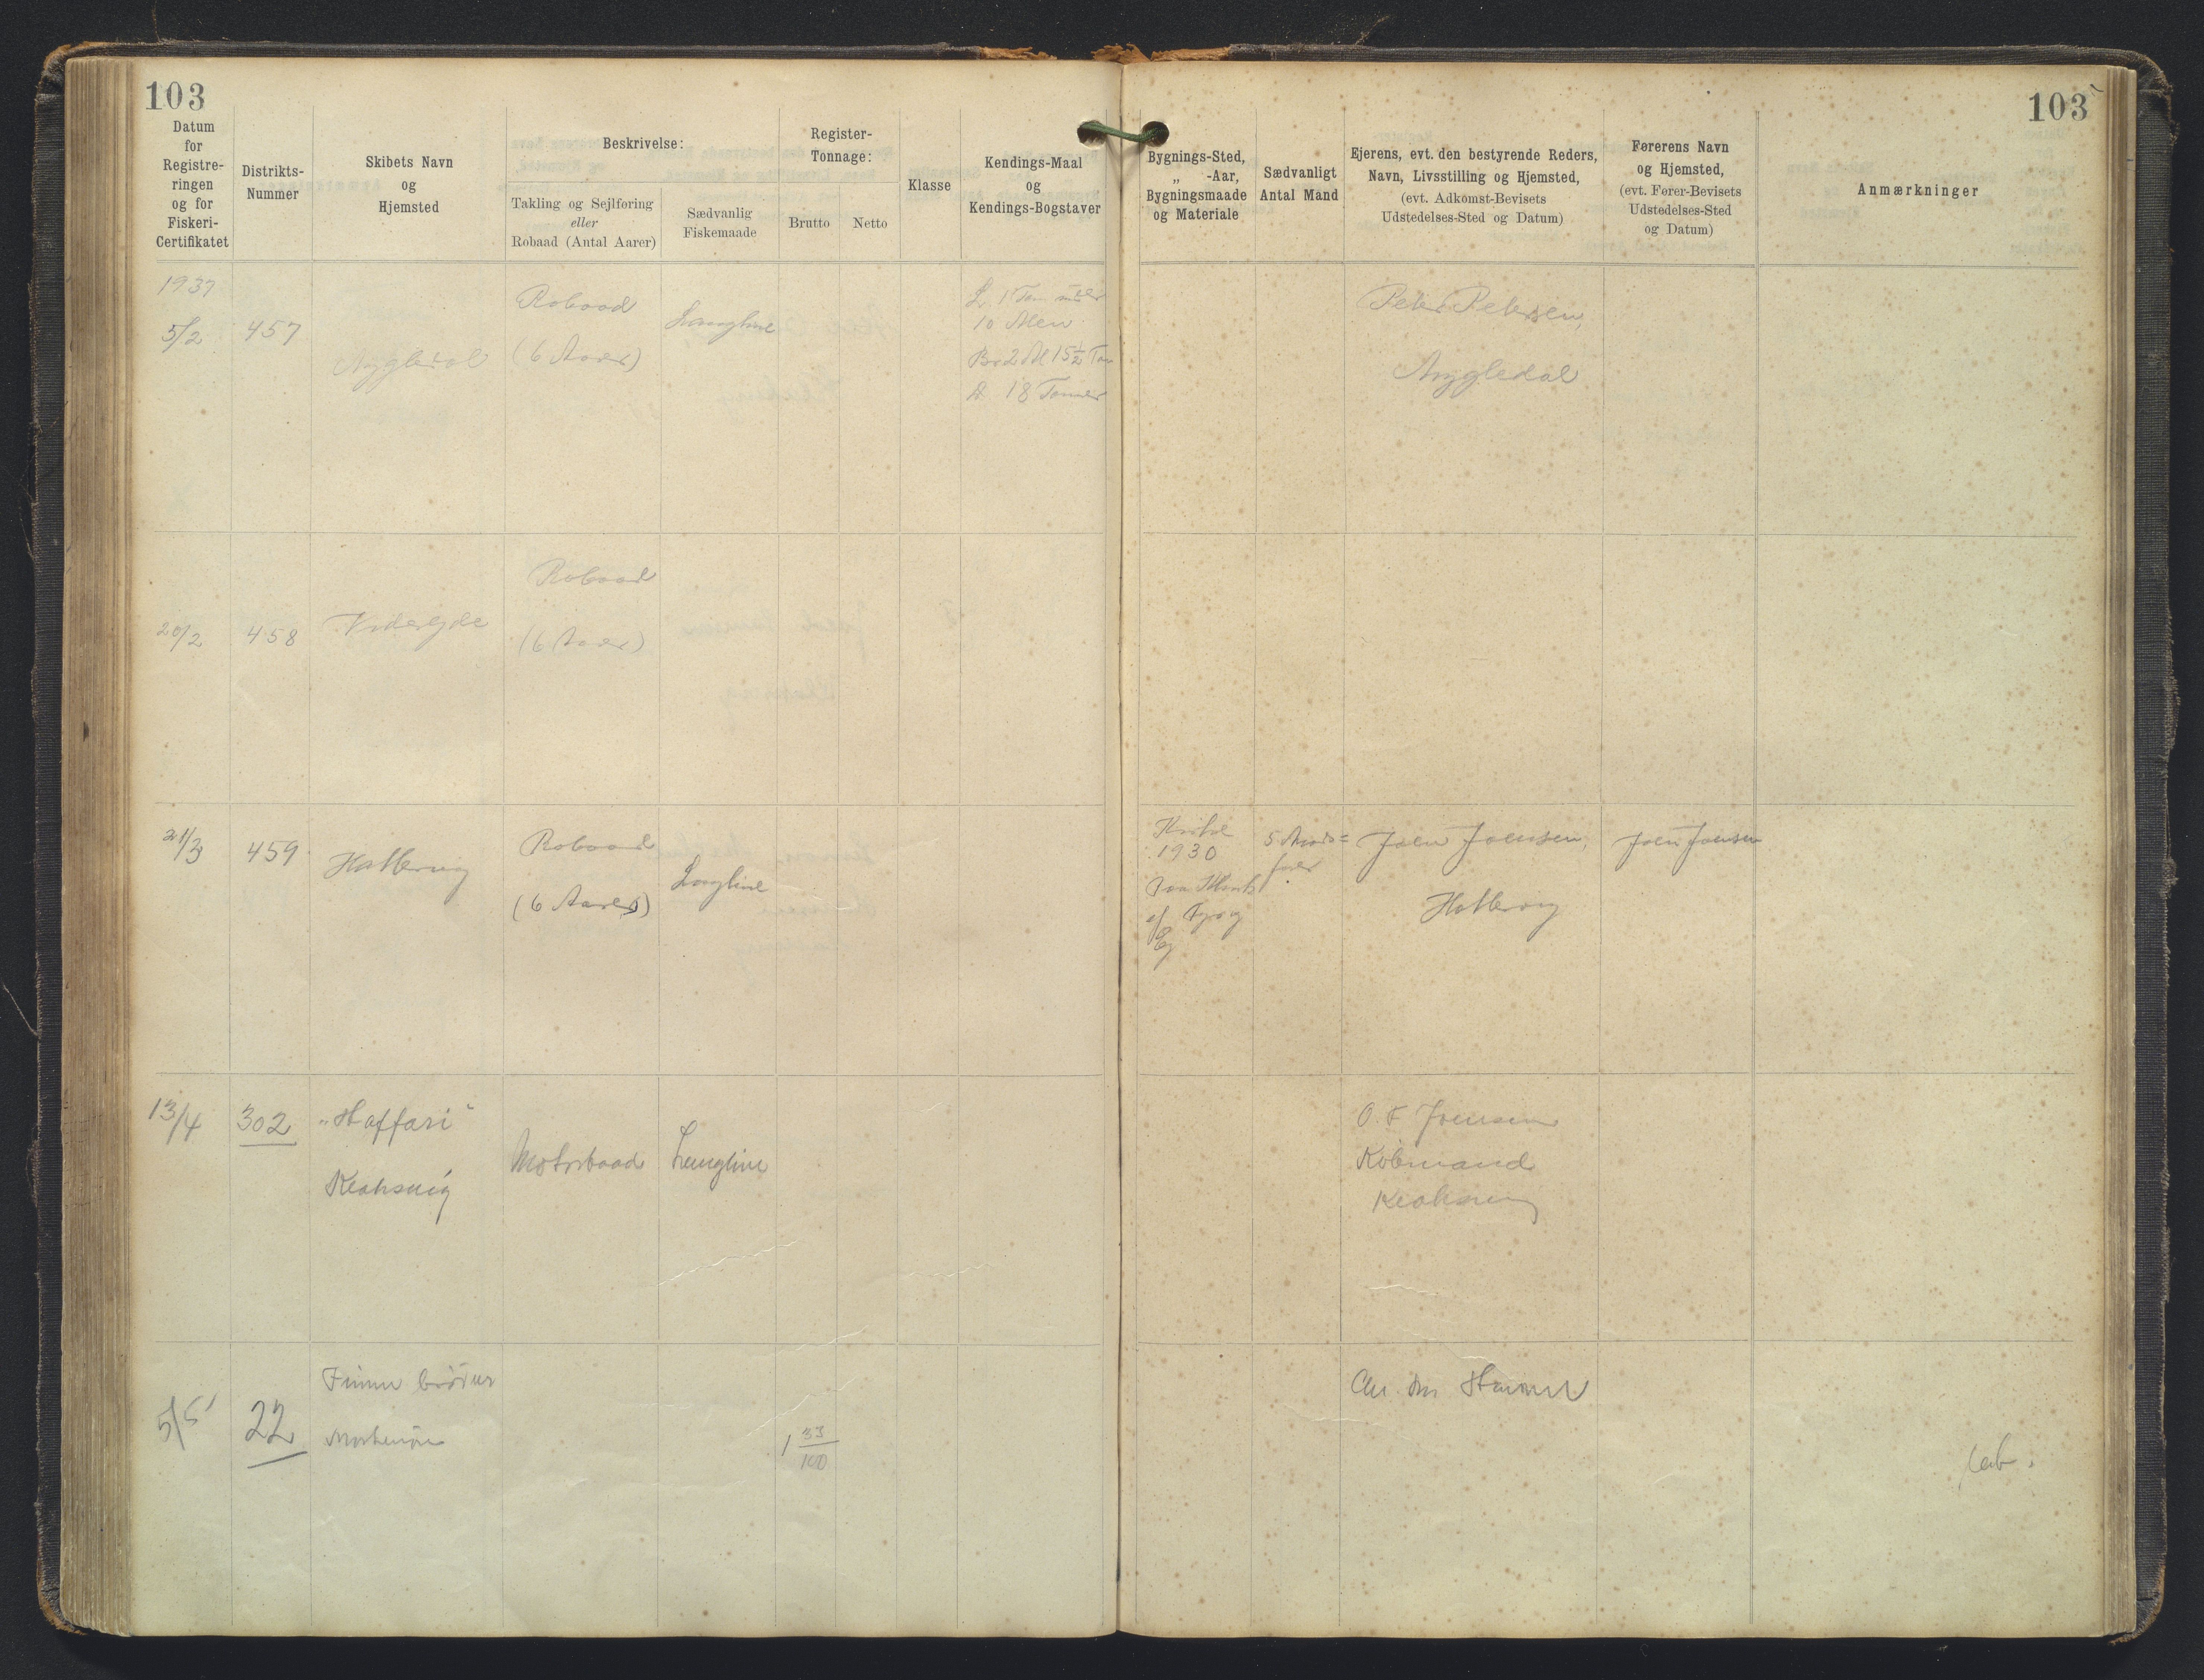 103
103
Datum
for
Registre-
ringen
og for
Fiskeri-
Certifikatet
Distrikts-
Nummer
Skibets Navn
og
Hjemsted
Beskrivelse:
Takling og Sejlføring
eller
Robaad (Antal Aarer)
Sædvanlig
Fiskemaade
Register-
Tonnage:
Brutto
Netto
Klasse
Kendings-Maal
og
Kendings-Bogstaver
Bygnings-Sted,
„ -Aar,
Bygningsmaade
og Materiale
Sædvanligt
Antal Mand
Ejerens, evt. den bestyrende Reders,
Navn, Livsstilling og Hjemsted,
(evt. Adkomst-Bevisets
Udstedelses-Sted og Datum)
Førerens Navn
og Hjemsted,
(evt. Fører-Bevisets
Udstedelses-Sted
og Datum)
Anmærkninger
1937
5/2
457
Nygledal
Robaad
(6 Aarer)
Langline
10 Alen
18 Tommer
Peter Petersen,
Nygledal
20/2
458
Viderejde
Robaad
(6 Aarer)
21/3
459
Hattervig
Robaad
(6 Aarer)
Langline
1930
af Fyr og
Eg
Joen Joensen,
Hattervig
Joen Joensen
13/4
302
"Haffari"
Klaksvig
Motorbaad
Langline
O. F. Joensen
Købmand
Klaksvig
5/5
22
brødur
1 33/100